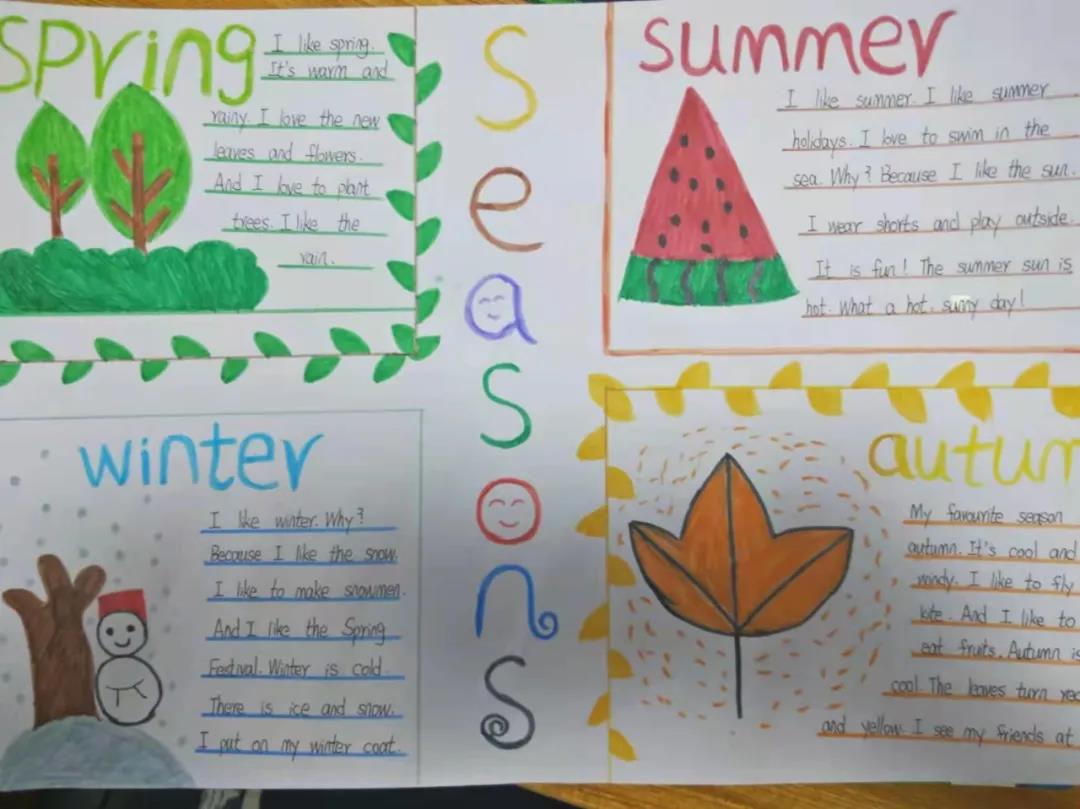 spring
I like spring.
It's warm and
rainy. I love the new
leaves and flowers.
And I love to plant
trees. I like the
rain.
Seasons
summer
I like summer. I like summer
holidays. I love to swim in the
sea. Why? Because I like the sun.
I wear shorts and play outside.
It is fun! The summer sun is
hot. What a hot, sunny day!
winter
I like winter. Why?
Because I like the snow.
I like to make snowmen.
And I like the Spring
Festival. Winter is cold.
There is ice and snow.
I put on my winter coat.
autum
My favourite season
autumn. It's cool and
windy. I like to fly
kite. And I like to
eat fruits. Autumn is
cool. The leaves turn
and yellow. I see my friends at